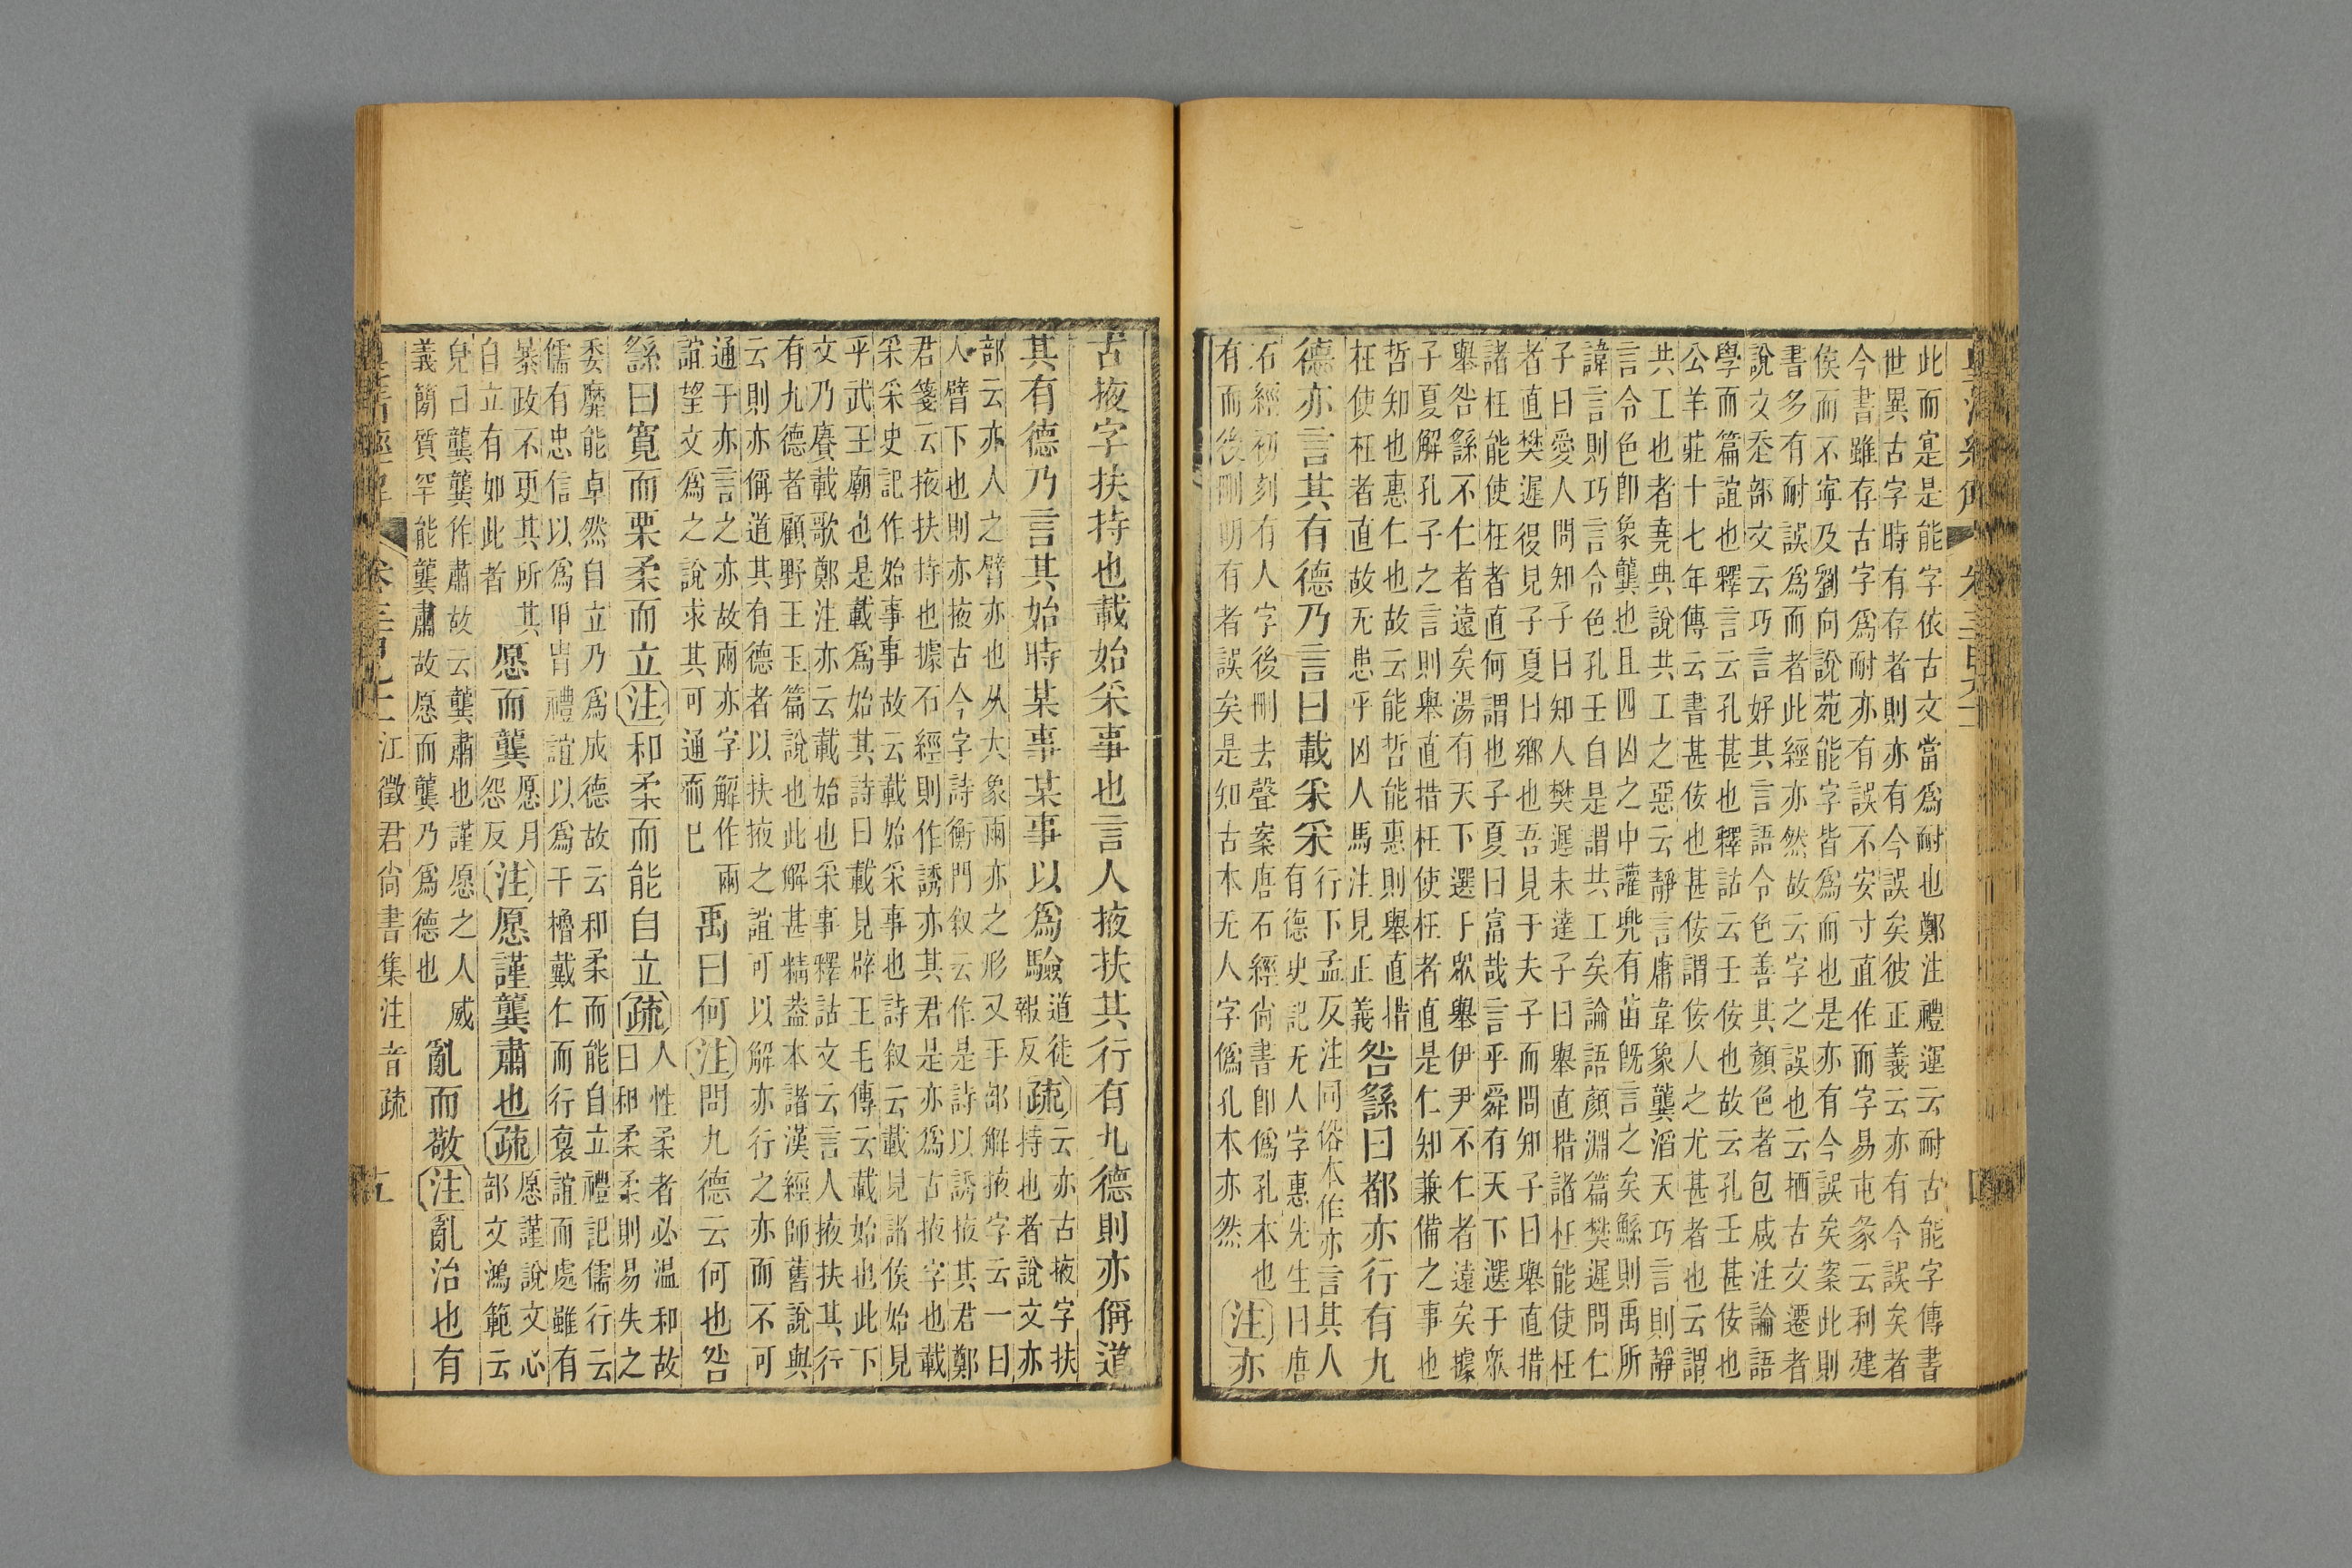 此而寔是能字依古文當爲耐也鄭注禮運云耐古能字傳書
世異古字時有存者則亦有今誤矣彼正義云亦有今誤矣者
今書雖存古字爲耐亦有誤不安寸直作而字易屯彖云利建
侯而不寧及劉向說苑能字皆爲而也是亦有今誤矣案此則
書多有耐誤爲而者此經亦然故云字之誤也云栖古文遷者
說文丞部文云巧言好其言語令色善其顏色者包咸注論語
學而篇誼也釋言云孔甚也釋詁云壬佞也故云孔壬甚佞也
公羊莊十七年傳云書甚佞也甚佞謂佞人之尤甚者也云謂
共工也者堯典說共工之惡云靜言庸韋象龔滔天巧言則靜
言令色卽象龔也且四凶之中讙兜有苗旣言之矣鯀則禹所
諱言則巧言令色孔壬自是謂共工矣論語顏淵篇樊遲問仁
子曰愛人問知子曰知人樊遲未達子曰舉直措諸枉能使枉
者直樊遲復見子夏曰鄉也吾見于夫子而問知子曰舉直措
諸枉能使枉者直何謂也子夏曰富哉言乎舜有天下選于眾
舉咎繇不仁者遠矣湯有天下選于眾舉伊尹不仁者遠矣據
子夏解孔子之言則舉直措枉使枉者直是仁知兼備之事也
哲知也惠仁也故云能哲能惠則舉直措
枉使枉者直故无患乎凶人馬注見正義
咎繇曰都亦行有九
德亦言其有德乃言曰載采采
行下孟反注同俗本作亦言其人
有德史記无人字惠先生曰唐
石經初刻有人字後刪去聲案唐石經尙書卽僞孔本也
有而後刪明有者誤矣是知古本无人字僞孔本亦然
注亦
古掖字扶持也載始采事也言人掖扶其行有九德則亦偁道
其有德乃言其始時某事某事以爲驗
道徒
報反
疏
云亦古掖字扶
持也者說文亦
部云亦人之臂亦也从大象兩亦之形又手部解掖字云一曰
人臂下也則亦掖古今字詩衡門叙云作是詩以誘掖其君鄭
君箋云掖扶持也據石經則作誘亦其君是亦爲古掖字也載
采采史記作始事事故云載始采事也詩叙云載見諸侯始見
乎武王廟也是載爲始其詩曰載見辟王毛傳云載始也此下
文乃賡載歌鄭注亦云載始也采事釋詁文云言人掖扶其行
有九德者顧野王玉篇說也此解甚精葢本諸漢經師舊說與
云則亦偁道其有德者以扶掖之誼可以解亦行之亦而不可
通于亦言之亦故兩亦字解作兩
誼望文爲之說求其可通而已
禹曰何注問九德云何也咎
繇曰寬而栗柔而立注和柔而能自立疏
人性柔者必温和故
曰和柔柔則易失之
委靡能卓然自立乃爲成德故云和柔而能自立禮記儒行云
儒有忠信以爲甲冑禮誼以爲干櫓戴仁而行裒誼而處雖有
暴政不更其所其
自立有如此者
愿而龔
愿月
怨反
注愿謹龔肅也疏
愿謹說文心
部文鴻範云
皃曰龔龔作肅故云龔肅也謹愿之人威
義簡質罕能龔肅故愿而龔乃爲德也
亂而敬注亂治也有
江徵君尙書集注音疏